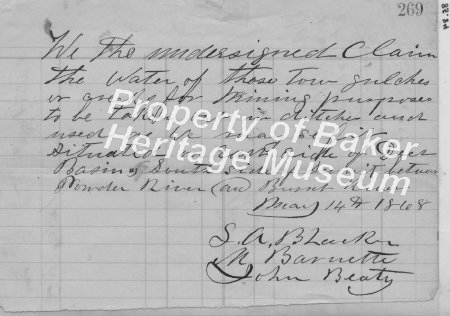 269
We the undersigned Claim
the Water of those tow gulches
or creeks for Mining purposes
to be taken in ditches and
used
Situation East side of
Basin South Side between
Powder River (and) Burnt
May 14th 1868
S. A. Blacker
M Barnette
John Beaty
Property of Baker
Heritage Museum